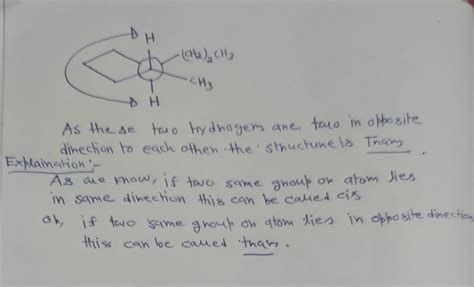 H
(CH2)2CH3
CH3
H
As the se two hydrogens are two in opposite
direction to each other the structure is Trans
Explaination:-
As we know, if two same group or atom lies
in same direction this can be called cis
Oh, if two same group or atom lies in opposite direction
this can be called trans.